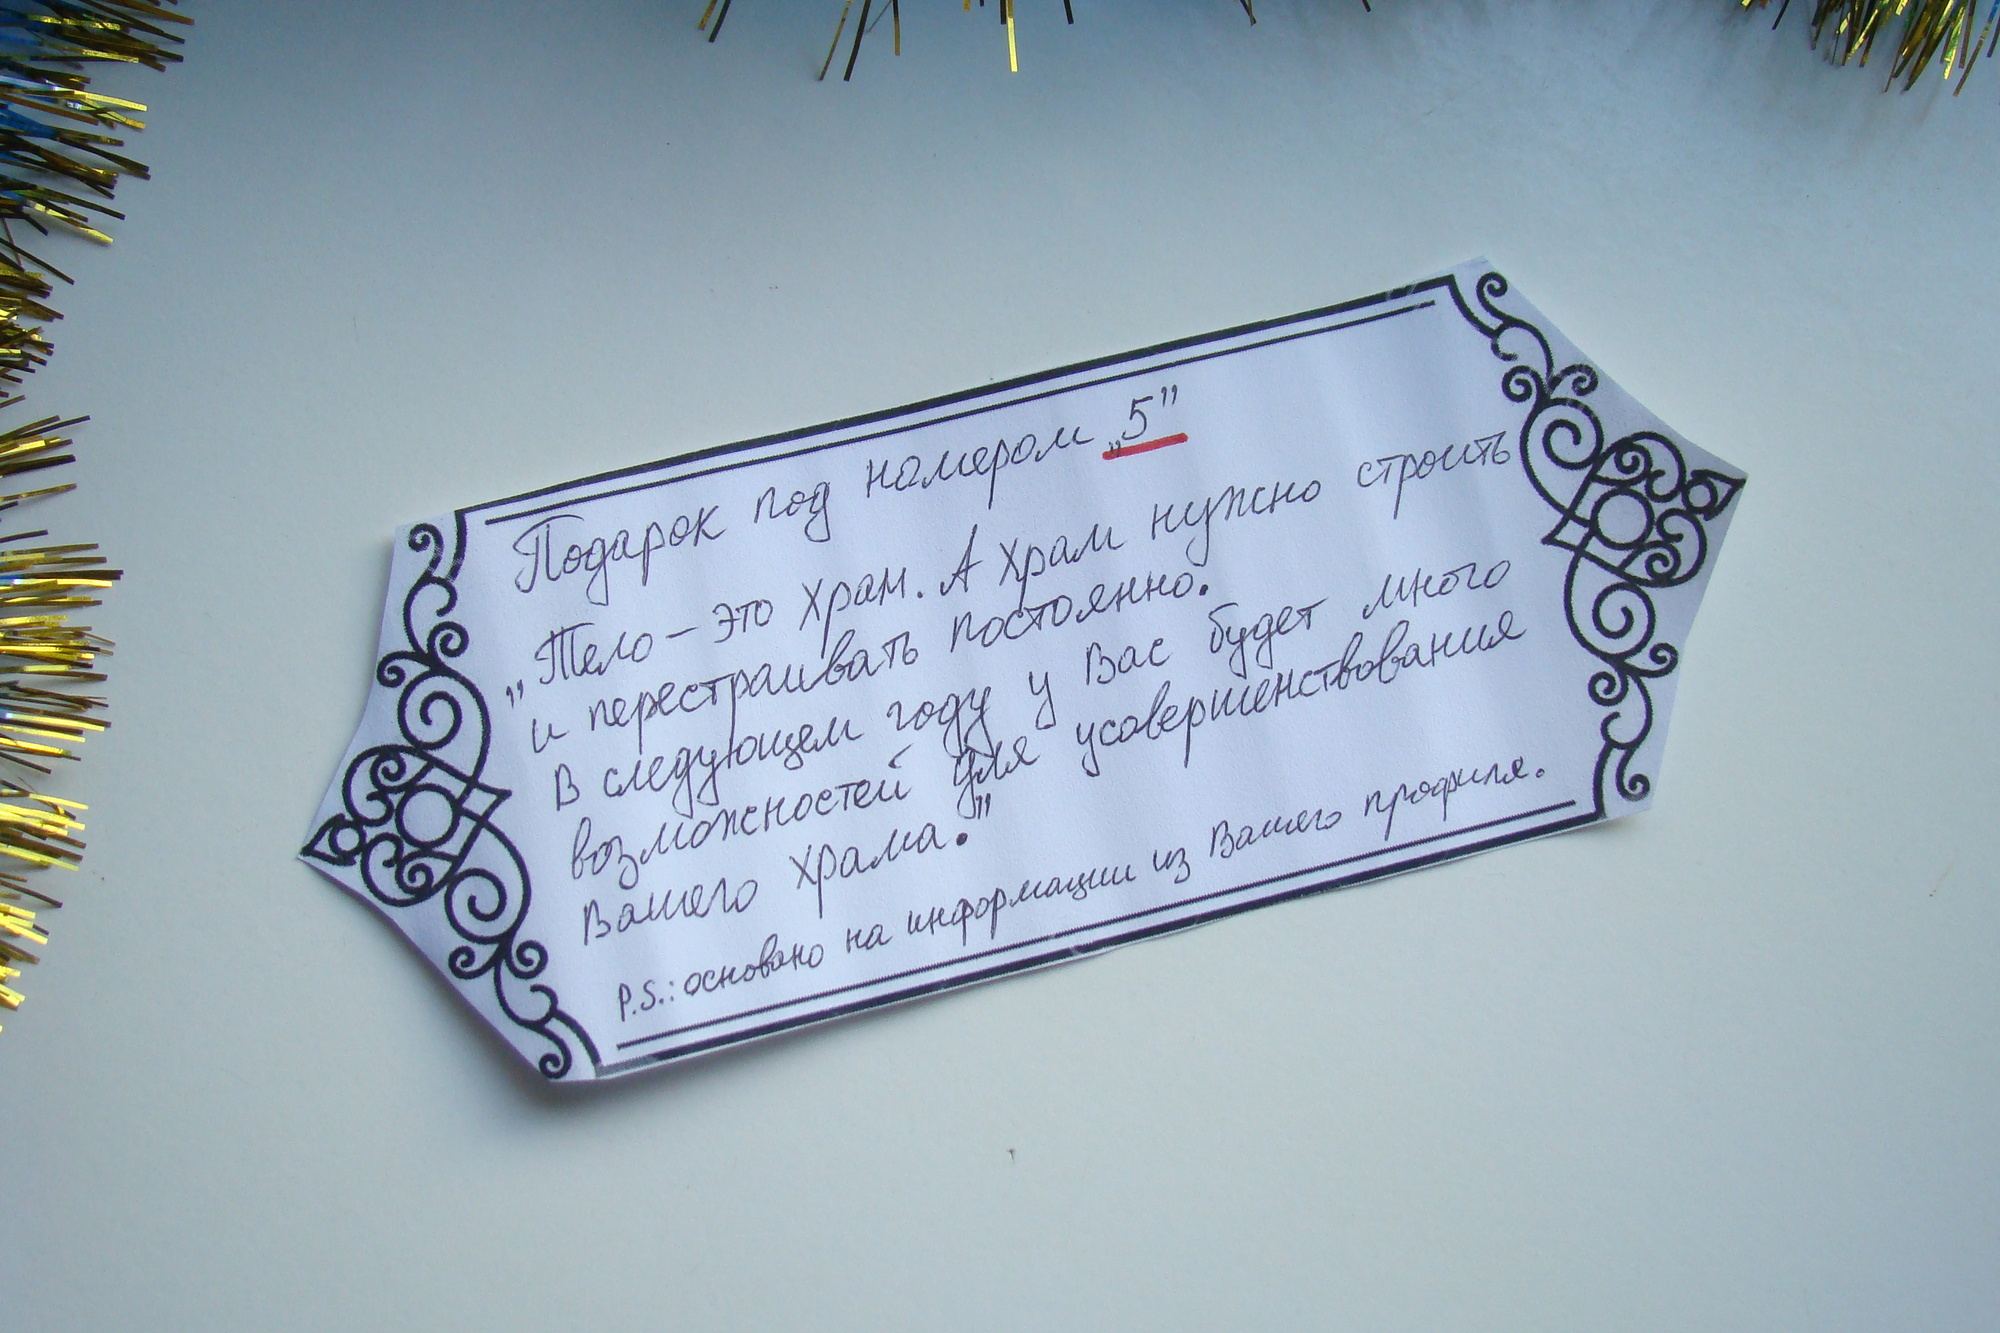 Подарок под номером „5”
„Тело – это храм. А храм нужно строить
и перестраивать постоянно.
В следующем году у Вас будет много
возможностей для усовершенствования
Вашего храма.”
P.S.: основано на информации из Вашего профиля.